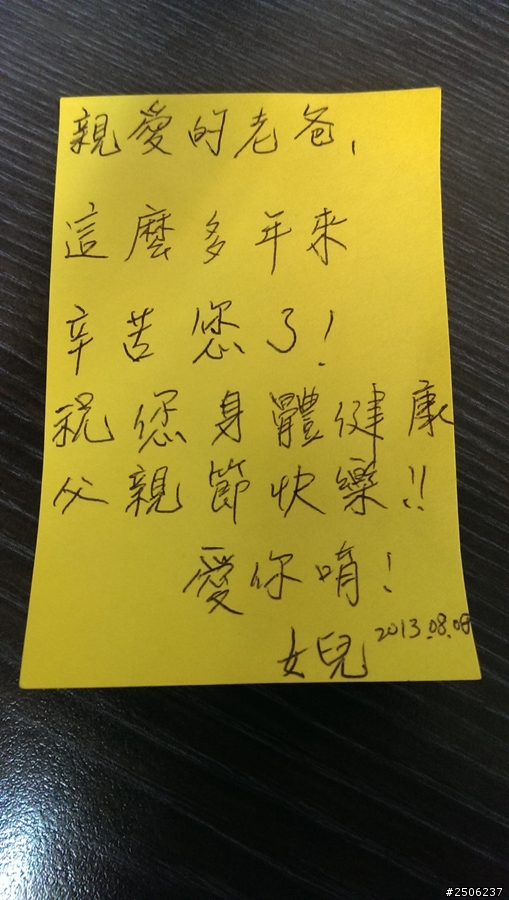 親愛的老爸,
這麼多年來
辛苦您了!
祝您身體健康
父親節快樂!!
愛你唷!
女兒 2013.08.08
#2506237